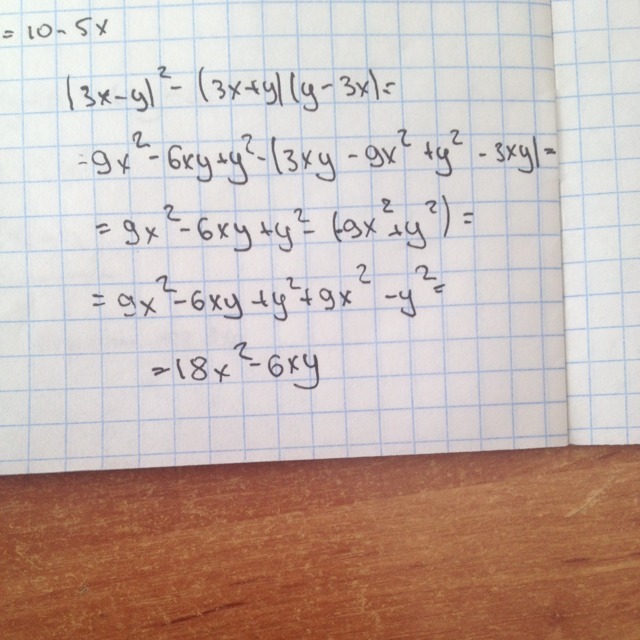 = 10 - 5x
(3x-y)² - (3x+y)(y-3x)=
=9x²-6xy+y²-(3xy-9x²+y²-3xy)=
=9x²-6xy+y²-(9x²+y²)=
=9x²-6xy+y²+9x²-y²=
=18x²-6xy